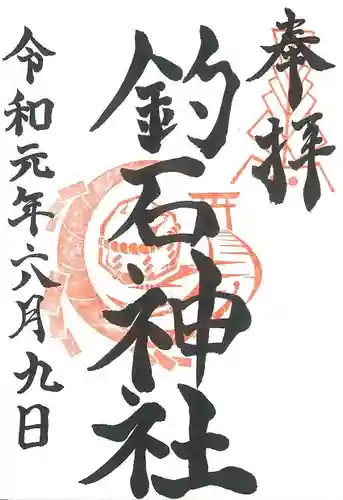 奉拝
釣石神社
令和元年六月九日